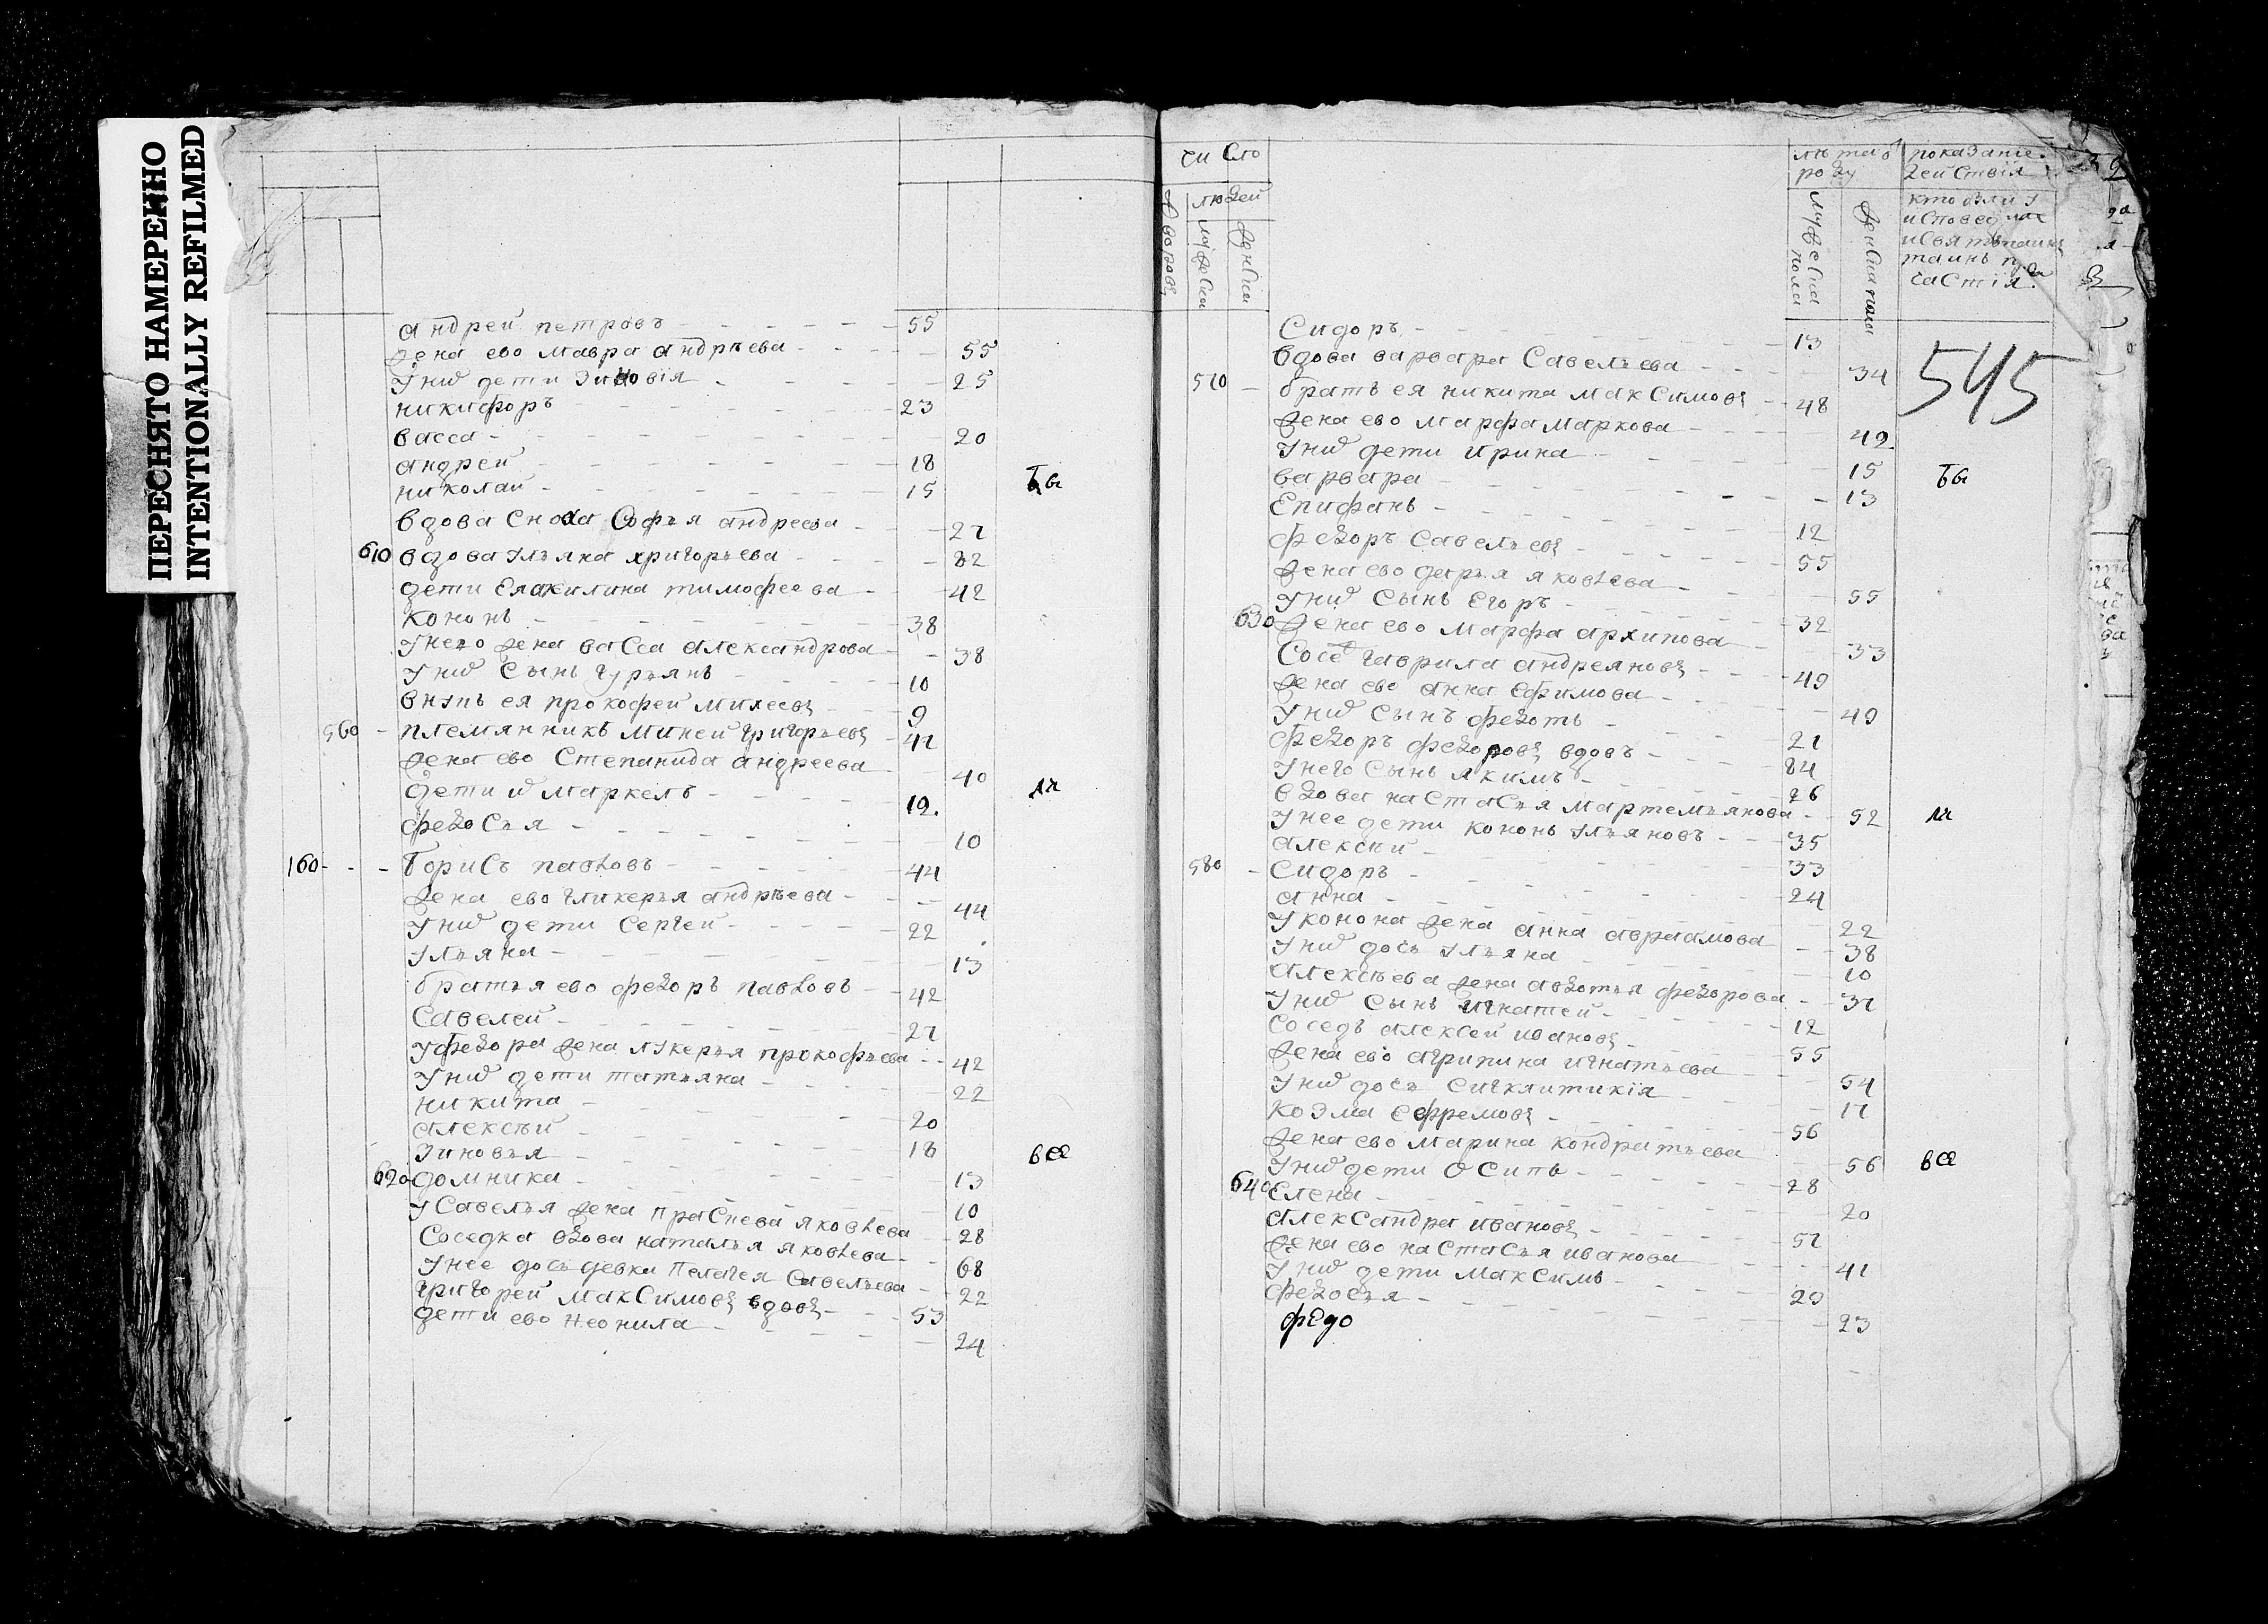 ПЕРЕСНЯТО НАМЕРЕННО
INTENTIONALLY REFILMED
андрей петровъ 55
жена ево мавра андрѣева 55
у нихъ дети Зиновія 25
никифоръ 23
васса 20
андрей 18
николай 15
вдова сноха Софья андреева 27
610 вдова Ульяна григорьева 82
дети Еѵакилина тимофеева 42
Кононъ 38
у него жена васса александрова 38
у нихъ сынъ гурьянъ 10
внукъ ея прокофей михеевъ 9
560 племянникъ михей григорьевъ 42
жена ево Степанида андреева 40
дети ихъ маркелъ 19
федосья 10
160 борисъ павловъ 44
жена ево гликерья андрѣева 44
у нихъ дети Сергей 22
ульяна 13
братья ево федоръ павловъ 42
Савелей 27
у федора жена лукерья прокофьева 42
у нихъ дети татьяна 22
никита 20
алексѣй 18
Зиновья 13
620 домника 10
у Савелья жена праскева яковлева 28
Соседка вдова наталья яковлева 68
у нее дочь девка пелагея Савельева 22
григорей максимовъ вдовъ 53
дети ево неонила 24
бы
ли
все
число
людей
дворовъ
мужеска
женска
лѣта отъ роду
мужеска пола
женска пола
показаніе
действія
кто были у
исповеди
и святыхъ
таинъ при
частія
545
Сидоръ 13
вдова варвара Савельева 34
570 братъ ея никита максимовъ 48
жена ево марфа маркова 49
у нихъ дети ирина 15
варвара 13
Епифанъ 12
федоръ Савельевъ 55
жена ево дарья яковлева 55
у нихъ сынъ Егоръ 32
630 жена ево марфа архипова 33
Сосед гаврила андреяновъ 49
жена ево анна ефимова 49
у нихъ сынъ федотъ 21
федоръ федоровъ вдовъ 84
у него сынъ якимъ 26
вдова настасья мартемьянова 52
у нее дети кононъ ульяновъ 35
алексѣй 33
580 Сидоръ 24
анна 22
у конона жена анна авраамова 38
у нихъ дочь ульяна 10
алексѣева жена авдотья федорова 31
у нихъ сынъ игнатей 12
Соседъ алексей ивановъ 55
жена ево агрипина игнатьева 54
у нихъ дочь Сигклитикія 17
козма ефремовъ 56
жена ево марина кондратьева 56
у нихъ дети осипъ 28
640 Елена 20
александра ивановъ 52
жена ево настасья иванова 41
у нихъ дети максимъ 20
федосья 23
федо
бы
ли
все